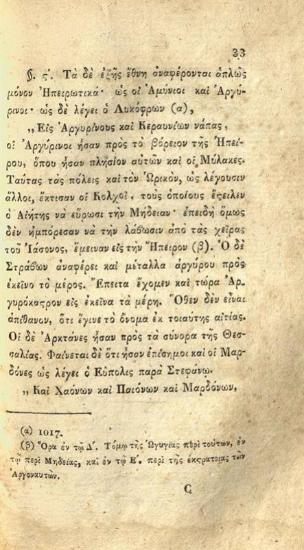 33
§. ς΄. Τὰ δὲ ἑξῆς ἔθνη ἀναφέρονται ἁπλῶς
μόνον Ἠπειρωτικά· ὡς οἱ Ἀμύνιοι καὶ Ἀργύ-
ρινοι· ὡς δὲ λέγει ὁ Λυκόφρων (α),
„ Εἰς Ἀργυρίνους καὶ Κεραυνίων νάπας,
οἱ Ἀργύρινοι ἦσαν πρὸς τὸ βόρειον τῆς Ἠπεί-
ρου, ὅπου ἦσαν πλησίον αὐτῶν καὶ οἱ Μύλακες.
Ταύτας τὰς πόλεις καὶ τὸν Ὠρικὸν, ὡς λέγουσιν
ἄλλοι, ἔκτισαν οἱ Κολχοὶ, τοὺς ὁποίους ἔξειλεν
ὁ Αἰήτης νὰ εὕρωσι τὴν Μήδειαν· ἐπειδὴ ὅμως
δὲν ἠμπόρεσαν νὰ τὴν λάβωσιν ἀπὸ τὰς χεῖρας
τοῦ Ἰάσονος, ἔμειναν εἰς τὴν Ἤπειρον (β). Ὁ δὲ
Στράβων ἀναφέρει καὶ μέταλλα ἀργύρου πρὸς
ἐκεῖνο τὸ μέρος. Ἔπειτα ἔχομεν καὶ τώρα Ἀρ-
γυρόκαστρον εἰς ἐκεῖνα τὰ μέρη. Ὅθεν δὲν εἶναι
ἀπίθανον, ὅτι ἔγινε τὸ ὄνομα ἐκ τοιαύτης αἰτίας.
Οἱ δὲ Ἀρκτᾶνες ἦσαν πρὸς τὰ σύνορα τῆς Θεσ-
σαλίας. Φαίνεται δὲ ὅτι ἦσαν ἐπίσημοι καὶ οἱ Μαρ-
δόνες ὡς λέγει ὁ Εὔπολις παρὰ Στεφάνῳ.
„ Καὶ Χαόνων καὶ Παιόνων καὶ Μαρδόνων,
(α) 1017.
(β) Ὅρα ἐν τῷ Δ΄. Τόμῳ τῆς Ὠγυγίας περὶ τούτων, ἐν
τῷ περὶ Μηδείας, καὶ ἐν τῷ Ε΄. περὶ τῆς ἐκστρατείας τῶν
Ἀργοναυτῶν.
C